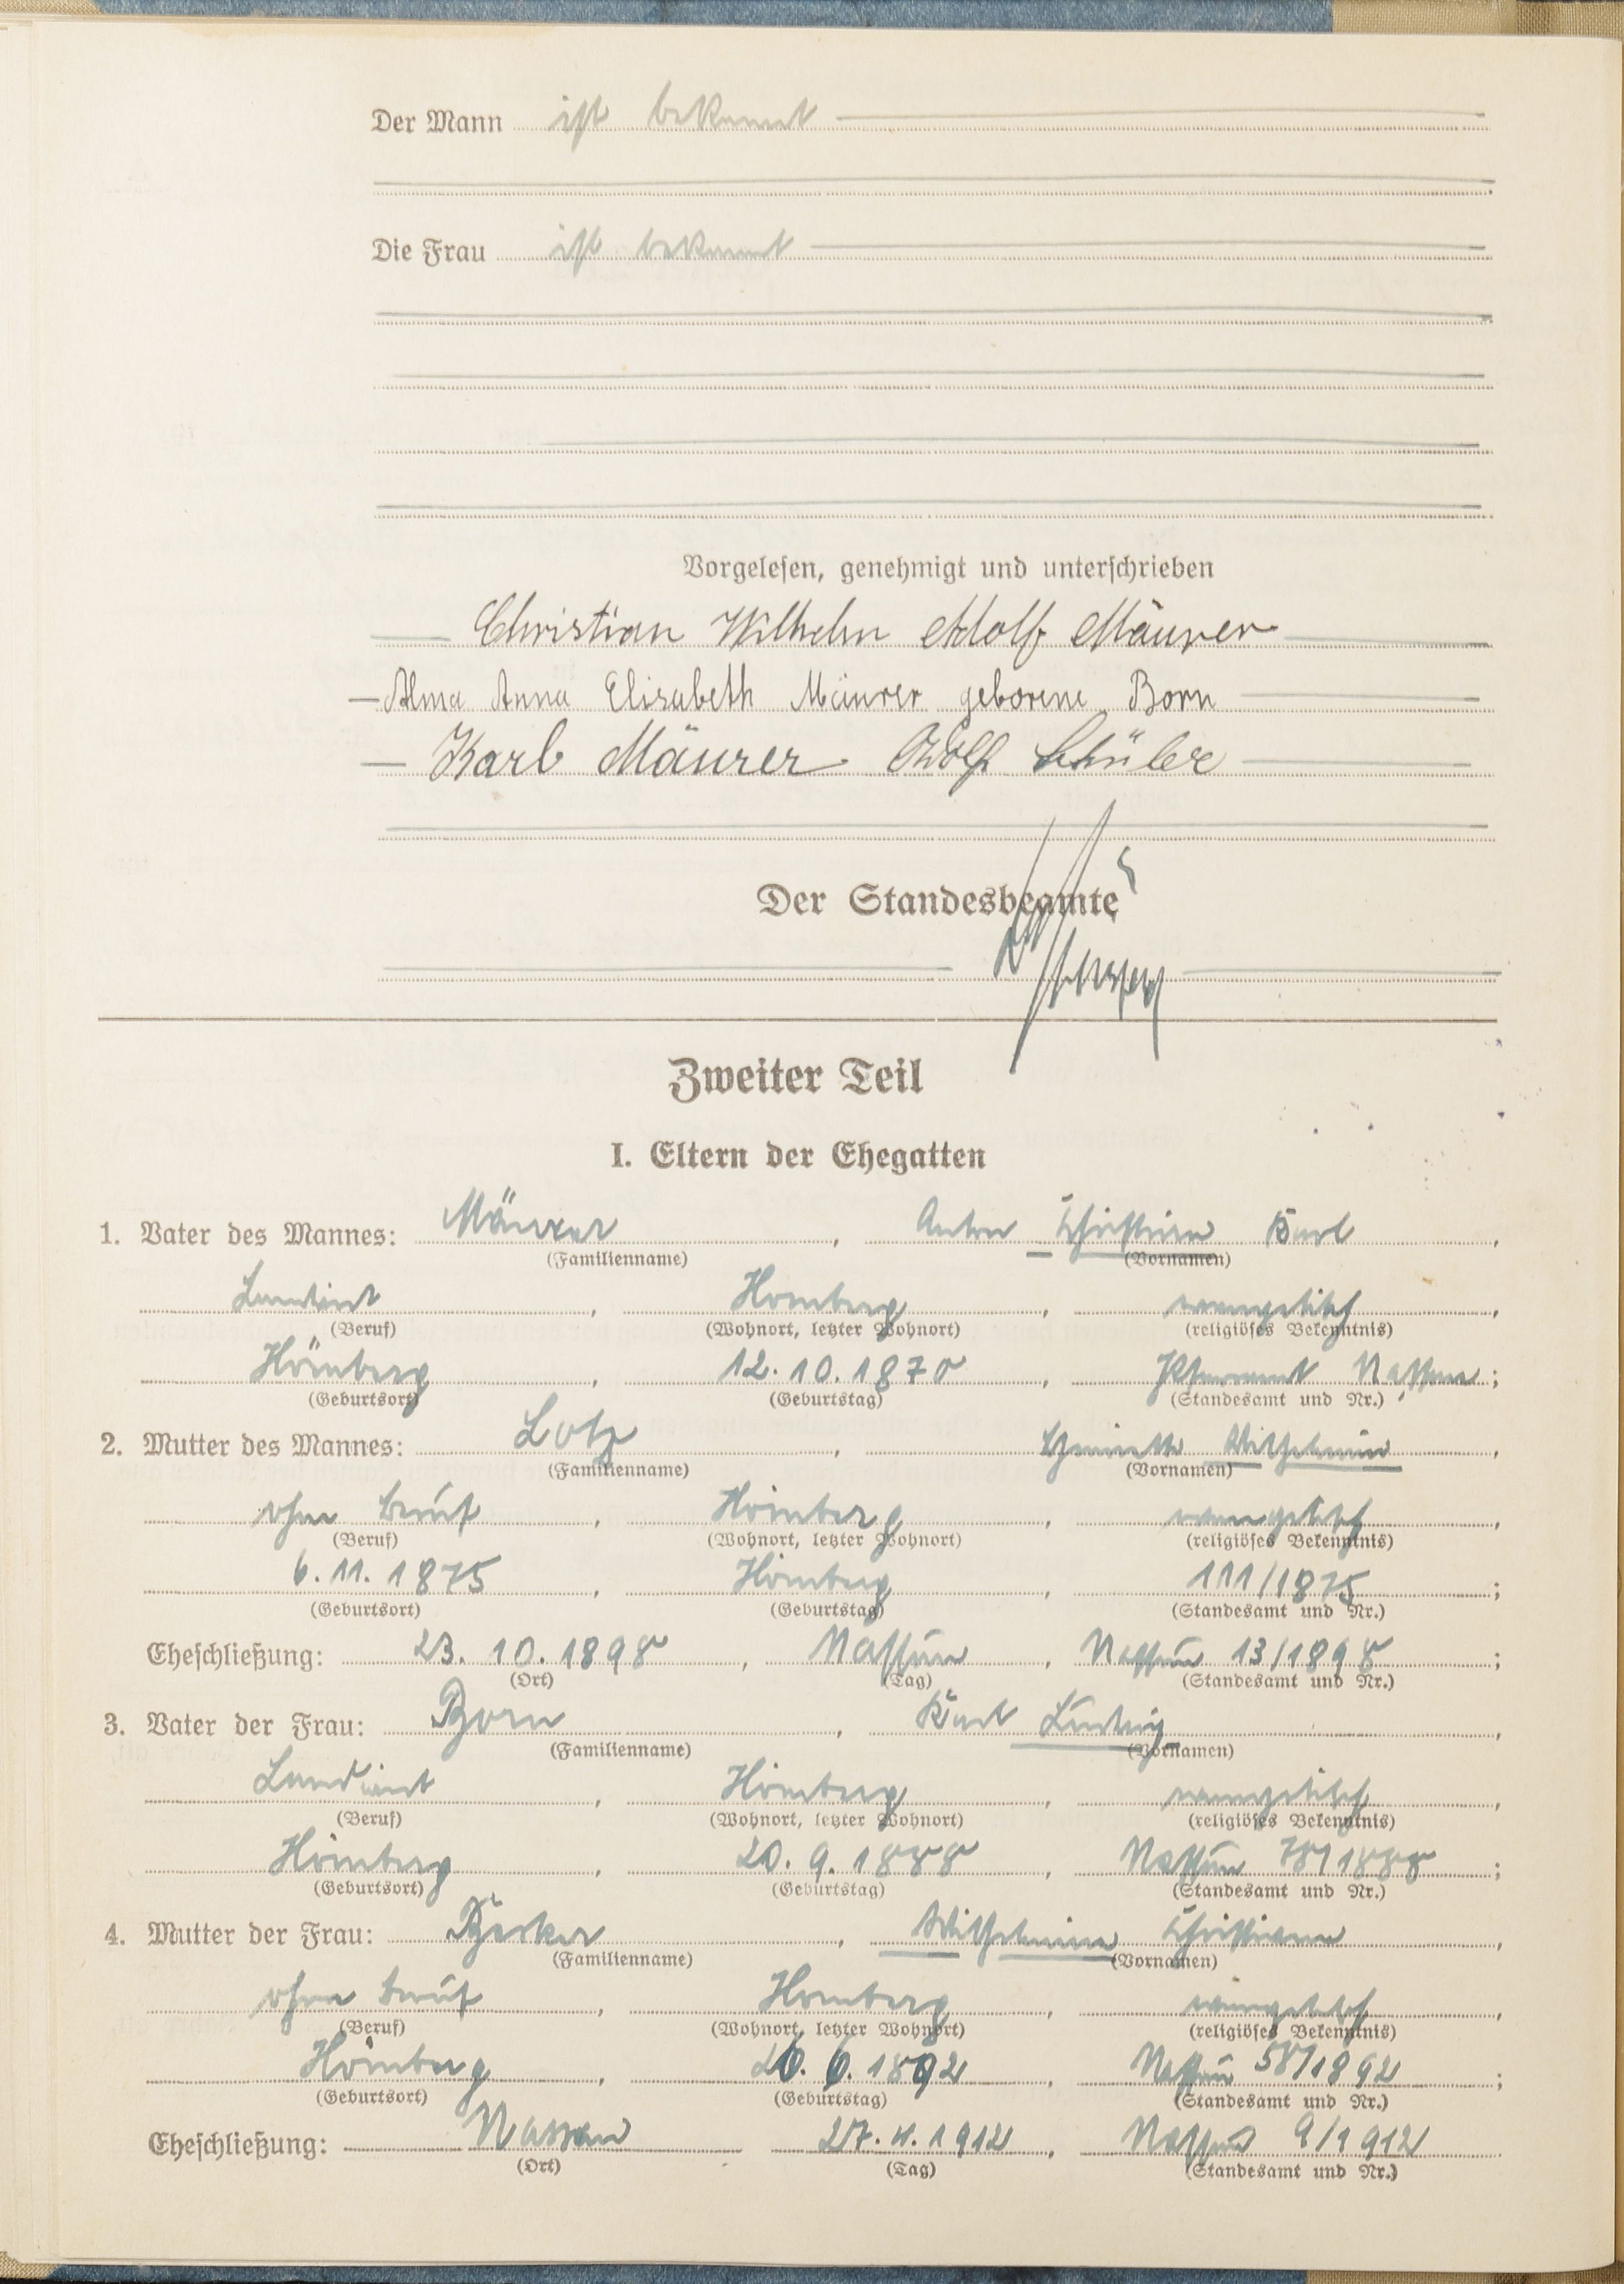 Der Mann ist bekannt
Die Frau ist bekannt
Vorgelesen, genehmigt und unterschrieben
Christian Wilhelm Adolf Mäurer
Alma Anna Elisabeth Mäurer geborene Born
Karl Mäurer Adolf Schüler
Der Standesbeamte
Zweiter Teil
I. Eltern der Ehegatten
1. Vater des Mannes: Mäurer, Anton Christian Karl,
(Familienname) (Vornamen)
Landwirt, Hömberg, evangelisch,
(Beruf) (Wohnort, letzter Wohnort) (religiöses Bekenntnis)
Hömberg, 12.10.1870, Pfarramt Nassau;
(Geburtsort) (Geburtstag) (Standesamt und Nr.)
2. Mutter des Mannes: Lotz, Wilhelmine,
(Familienname) (Vornamen)
ohne Beruf, Hömberg, evangelisch,
(Beruf) (Wohnort, letzter Wohnort) (religiöses Bekenntnis)
6.11.1875, Hömberg, 111/1875;
(Geburtsort) (Geburtstag) (Standesamt und Nr.)
Eheschließung: 23.10.1898, Nassau, Nassau 13/1898;
(Ort) (Tag) (Standesamt und Nr.)
3. Vater der Frau: Born, Karl Ludwig,
(Familienname) (Vornamen)
Landwirt, Hömberg, evangelisch,
(Beruf) (Wohnort, letzter Wohnort) (religiöses Bekenntnis)
Hömberg, 20.9.1888, Nassau 78/1888;
(Geburtsort) (Geburtstag) (Standesamt und Nr.)
4. Mutter der Frau: Becker, Wilhelmine Christiane,
(Familienname) (Vornamen)
ohne Beruf, Hömberg, evangelisch,
(Beruf) (Wohnort, letzter Wohnort) (religiöses Bekenntnis)
Hömberg, 26.6.1892, Nassau 58/1892;
(Geburtsort) (Geburtstag) (Standesamt und Nr.)
Eheschließung: Nassau 27.4.1912, Nassau 9/1912
(Ort) (Tag) (Standesamt und Nr.)